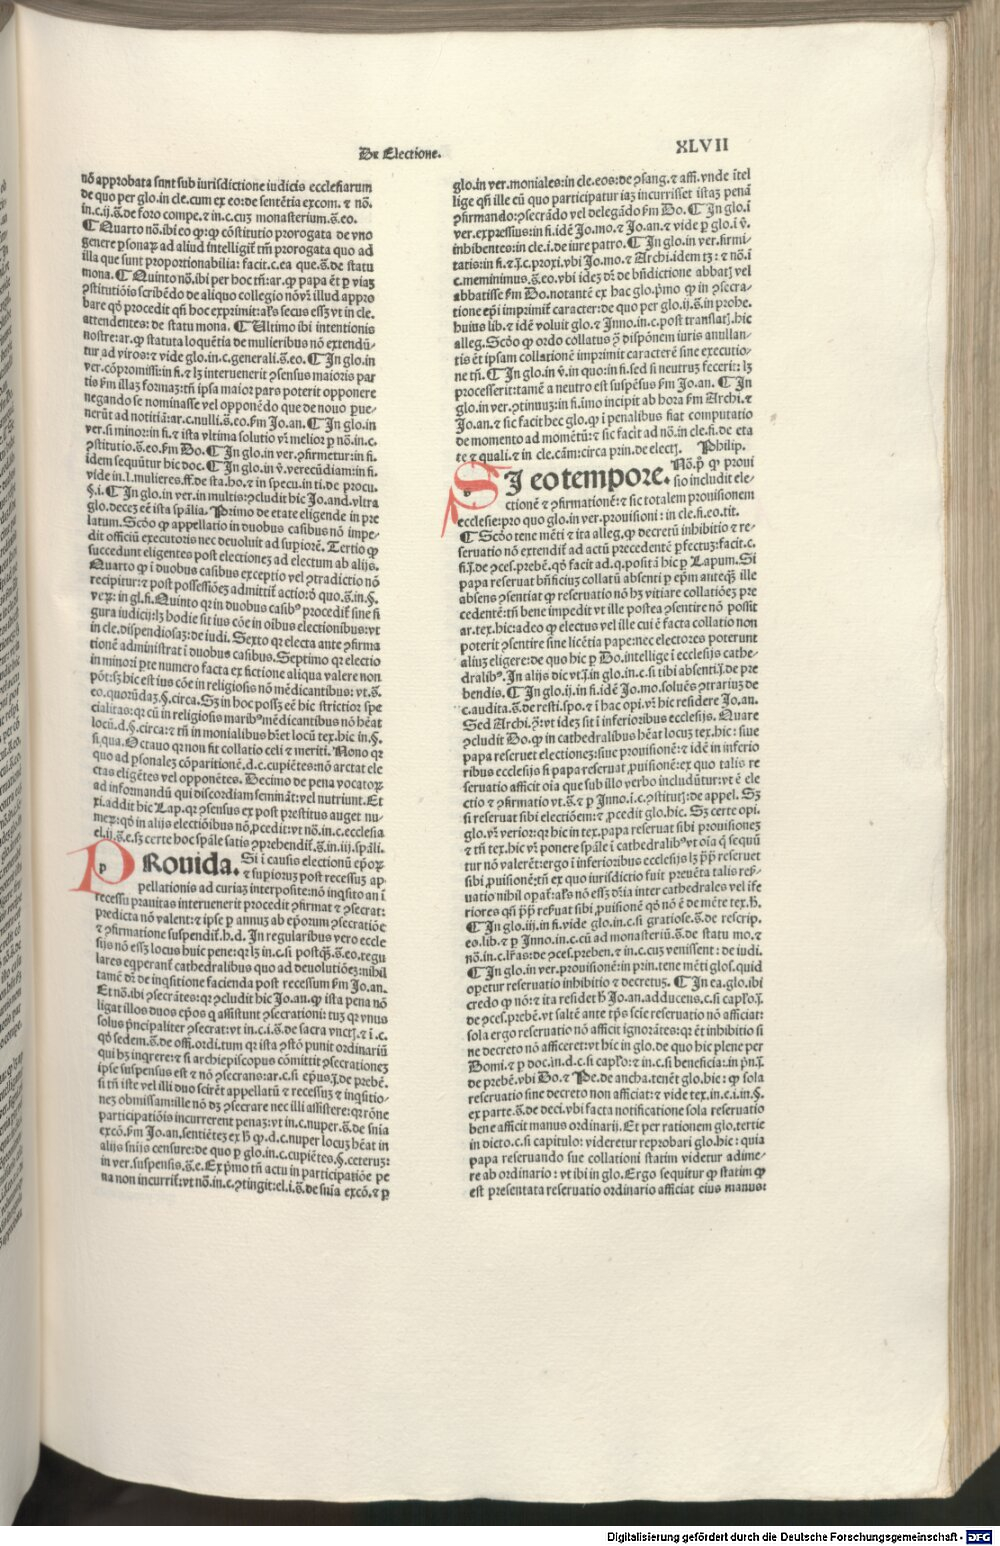 De Electione.
XLVII
nõ approbata sunt sub iurisdictione iudicis ecclesiarum
de quo per glo.in cle.cum ex eo:de sentẽtia excom. ⁊ nõ.
in.c.ij.§.de foro compe.⁊ in.c.cuꝫ monasterium.§.eo.
¶ Quarto nõ.ibi eo ꝙ:ꝙ cõstitutio prorogata de vno
genere ꝑsonaꝝ ad aliud intelligit᷑ tm̃ prorogata quo ad
illa que sunt proportionabilia: facit.c.ea que.§.de statu
mona. ¶ Quinto nõ.ibi per hoc tm̃:ar.ꝙ papa ẽt ꝑ viaꝫ
ꝯstitutiõis scribẽdo de aliquo collegio
bare qd̃ procedit qñ hoc exprimit:al̃s secus eẽt vt in cle.
attendentes: de statu mona. ¶ Ultimo ibi intentionis
nostre:ar.ꝙ statuta loquẽtia de mulieribus nõ extendũ-
tur ad viros:⁊ vide glo.in.c.generali.§.eo. ¶ In glo.in
ver.cõpromissi:in fi.⁊ lꝫ interuenerit ꝯsensus maioris par
tis ẜm illaꝫ formaꝫ:tñ ipsa maior pars poterit opponere
negando se nominasse vel opponẽdo que de nouo ꝑue-
nerũt ad notitiã:ar.c.nulli.§.eo.ẜm Jo.an. ¶ In glo.in
ver.si minor:in fi.⁊ ista vltima solutio vr̃ melior ꝑ nõ.in.c.
ꝯstitutio.§.eo.ẜm Do. ¶ In glo.in ver.ꝯfirmetur:in fi.
idem sequũtur hic doc. ¶ In glo.in v̉.verecũdiam:in fi.
vide in.l.mulieres.ff.de sta.ho.⁊ in specu.in ti.de procu.
§.i. ¶ In glo.in ver.in multis:ꝯcludit hic Jo.and.vltra
glo.deceꝫ eẽ ista spãlia. Primo de etate eligende in pre
latum. Scðo ꝙ appellatio in duobus casibus nõ impe-
dit officiũ executoris nec deuoluit ad supiorẽ. Tertio ꝙ
succedunt eligentes post electioneꝫ ad electum ab alijs.
Quarto ꝙ i duobus casibus exceptio vel ꝯtradictio nõ
recipitur:⁊ post possessiõeꝫ admittit᷑ actio:ꝙ quo.§.in.§.
Quinto qꝛ in duobus casibꝰ procedit᷑ sine fi
gura iudicij:lꝫ hodie sit ius cõe in oibus electionibus:vt
in cle.dispendiosaꝫ:de iudi. Sexto qꝛ electa ante ꝯfirma
tionẽ administrat i duobus casibus. Septimo qꝛ electio
in minori ꝑte numero facta ex fictione aliqua valere non
põt:sꝫ hic est ius cõe in religiosis nõ mẽdicantibus: vt.§.
eo.quorũdaꝫ.§.circa. Sꝫ in hoc possꝫ eẽ hic strictior spe
cialitas:qꝛ cũ in religiosis maribꝰ mẽdicantibus nõ hẽat
locũ.d.§.circa:⁊ tñ in monialibus hꝛet locũ tex.hic in.§.
si qua. Octauo qꝛ non fit collatio celi ⁊ meriti. Nono qꝛ
quo ad ꝑsonaleꝫ cõparitionẽ.d.c.cupiẽtes:nõ arctat ele
ctas eligẽtes vel opponẽtes. Decimo de pena vocatoꝝ
ad informandũ qui discordiam seminãt:vel nutriunt. Et
xi.addit hic Lap.qꝛ ꝯsensus ex post prestitus auget nu-
meꝝ:qd̃ in alijs electiõibus nõ ꝓcedit:vt nõ.in.c.ecclesia
el.ij.§.e.sꝫ certe hoc spãle satis ꝯprehendit᷑.§.in.iij.spãli.
PRouida. Si i causis electionũ epõꝝ
⁊ supioruꝫ post recessuꝫ ap-
pellationis ad curiaꝫ interposite:nõ inqsito an i
recessu prauitas interuenerit procedit ꝯfirmat ⁊ ꝯsecrat:
predicta nõ valent:⁊ ipse ꝑ annuꝫ ab epõrum ꝯsecratiõe
⁊ ꝯfirmatione suspendit᷑.h.d. In regularibus vero eccle
sijs nõ essꝫ locus huic pene:qꝛ lꝫ in.c.si postq̃ꝫ.§.eo.regu
lares eq̃perant᷑ cathedralibus quo ad deuolutiõeꝫ:nihil
tamẽ dr̃ de inqsitione facienda post recessum ẜm Jo.an.
Et nõ.ibi ꝯsecrãtes:qꝛ ꝯcludit hic Jo.an.ꝙ ista pena nõ
ligat illos duos epõs q assistunt ꝯsecrationi: tuꝫ qꝛ vnus
solus ṗncipaliter ꝯsecrat:vt in.c.i.§.de sacra vnctꝭ.⁊ i.c.
qd̃ sedem.§.de offi.ordi.tum qꝛ ista ꝯstõ punit ordinariũ
qui hꝫ inqrere:⁊ si archiepiscopus cõmittit ꝯsecrationeꝫ
ipse suspensus est ⁊ nõ ꝯsecrans:ar.c.si epũs.j̃.de prebẽ.
si tñ iste vel illi duo scirẽt appellatũ ⁊ recessuꝫ ⁊ inqsitio-
neꝫ obmissam:ille nõ dꝫ ꝯsecrare nec illi assistere:qꝛ rõne
participatiõis incurrerent penaꝫ:vt in.c.nuper.§.de snĩa
excõ.ẜm Jo.an.sentiẽteꝫ ex ħ ꝙ.d.c.nuper locuꝫ hẽat in
alijs snĩjs censure:de quo ꝑ glo.in.c.cupiẽtes.§.ceteruꝫ:
in ver.suspensis.§.e. Ex ṗmo tñ actu in participatiõe pe
na non incurrit᷑:vt nõ.in.c.ꝯtingit:el.i.§.de snĩa excõ.⁊ ꝑ
glo.in ver.moniales:in cle.eos:de ꝯsang.⁊ affi.vnde ĩtel
lige qñ ille cũ quo participatur iaꝫ incurrisset istaꝫ penã
ꝯfirmando:ꝯsecrãdo vel delegãdo ẜm Do. ¶ In glo.i
ver.expressius:in fi.idẽ Jo.mo.⁊ Jo.an.⁊ vide ꝑ glo.i v̉.
inhibentes:in cle.i.de iure patro. ¶ In glo.in ver.firmi-
tatis:in fi.⁊ j̃.c.proxi.vbi Jo.mo.⁊ Archi.idem tꝫ:⁊ nõ.i
c.meminimus.§.eo.vbi ideꝫ dr̃ de bñdictione abbatꝭ vel
abbatisse ẜm Do.notantẽ ex hac glo.ṗmo ꝙ in ꝯsecra-
tione epĩ imprimit᷑ caracter:de quo per glo.ij.§.in prohe.
huius lib.⁊ idẽ voluit glo.⁊ Inno.in.c.post translatꝭ.hic
alleg. Scðo ꝙ ordo collatus ꝯ̃ dispõnem iuris annullan-
tis ẽt ipsam collationẽ imprimit caracterẽ sine executio-
ne tñ. ¶ In glo.in v̉.in quo:in fi.sed si neutruꝫ fecerit: lꝫ
processerit:tamẽ a neutro est suspẽsus ẜm Jo.an. ¶ In
glo.in ver.ꝯtinuuꝫ:in fi.imo incipit ab hora ẜm Archi.⁊
Jo.an.⁊ sic facit hec glo.ꝙ i penalibus fiat computatio
de momento ad momẽtũ:⁊ sic facit ad nõ.in cle.fi.de eta
te ⁊ quali.⁊ in cle.cãm:circa prin.de electꝭ. Philip.
SI eo tempore. Nõ.ṗ ꝙ proui
sio includit ele-
ctionẽ ⁊ ꝯfirmationẽ:⁊ sic totalem prouisionem
ecclesie:pro quo glo.in ver.prouisioni: in cle.fi.eo.tit.
¶ Scðo tene mẽti ⁊ ita alleg.ꝙ decretũ inhibitio ⁊ re-
seruatio nõ extendit᷑ ad actũ precedentẽ ꝑfectuꝫ:facit.c.
fi.j̃.de ꝯces.prebẽ.qd̃ facit ad.q.positã hic ꝑ Lapum. Si
papa reseruat bñficiuꝫ collatũ absenti ꝑ epm̃ anteq̃ꝫ ille
absens ꝯsentiat ꝙ reseruatio nõ hꝫ vitiare collatiõeꝫ pre
cedentẽ:tñ bene impedit vt ille postea ꝯsentire nõ possit
ar.tex.hic:adeo ꝙ electus vel ille cui ẽ facta collatio non
poterit ꝯsentire sine licẽtia pape:nec electores poterunt
aliuꝫ eligere:de quo hic ꝑ Do.intellige i ecclesijs cathe-
dralibꝰ. In alijs dic vt.j̃.in glo.in.c.si tibi absenti.j̃.de pre
bendis. ¶ In glo.ij.in fi.idẽ Jo.mo.soluẽs ꝯtrariuꝫ de
c.audita.§.de resti.spo.⁊ i hac opi.vr̃ hic residere Jo.an.
Sed Archi.ꝯ̃:vt ideꝫ sit i inferioribus ecclesijs. Quare
ꝯcludit Do.ꝙ in cathedralibus hẽat locuꝫ tex.hic: siue
papa reseruet electioneꝫ:siue prouisionẽ:⁊ idẽ in inferio
ribus ecclesijs si papa reseruat ꝓuisionẽ:ex quo talis re
seruatio afficit oĩa que sub illo verbo includũtur:vt ẽ ele
ctio ⁊ ꝯfirmatio vt.§.⁊ ꝑ Inno.i.c.ꝯstitutꝭ:de appel. Sꝫ
si reseruat sibi electiõem:⁊ ꝓcedit glo.hic. Sꝫ certe opi.
glo.vr̃ verior:qꝛ hic in tex.papa reseruat sibi prouisioneꝫ
⁊ tñ tex.hic vr̃ ponere spãle i cathedralibꝰ:vt oĩa q̃ sequũ
tur nõ valerẽt:ergo i inferioribus ecclesijs lꝫ p̃p̃ reseruet
sibi ꝓuisionẽ:tñ ex quo iurisdictio fuit preuẽta talis resẽ-
uatio nihil opat᷑:al̃s nõ essꝫ dr̃ia inter cathedrales vel ĩfe
riores qñ p̃p̃ reẜuat sibi ꝓuisionẽ qd̃ nõ ẽ de mẽte tex.ħ.
¶ In glo.iij.in fi.vide glo.in.c.si gratiose.§.de rescrip.
eo.lib.⁊ ꝑ Inno.in.c.cũ ad monasteriũ.§.de statu mo.⁊
nõ.in.c.lr̃as:de ꝯces.preben.⁊ in.c.cuꝫ venissent: de iudi.
¶ In glo.in ver.prouisionẽ:in prin.tene mẽti glos.quid
opetur reseruatio inhibitio ⁊ decretuꝫ. ¶ In ea.glo.ibi
credo ꝙ nõ:⁊ ita residet ħ Jo.an.adducens.c.si capl̃o.j̃.
de ꝯces.prebẽ.vt saltẽ ante tp̃s scie reseruatio nõ afficiat:
sola ergo reseruatio nõ afficit ignorãtes:qꝛ ẽt inhibitio si
ne decreto nõ afficeret:vt hic in glo.de quo hic plene per
Domi.⁊ ꝑ doc.in.d.c.si capl̃o:⁊ in.c.si beneficia:in ṗn.j̃.
de prebẽ.vbi Do.⁊ Pe.de ancha.tenẽt glo.hic: ꝙ sola
reseruatio sine decreto non afficiat:⁊ vide tex.in.c.i.in.§.
ex parte.§.de deci.vbi facta notificatione sola reseruatio
bene afficit manus ordinarij. Et per rationem glo.tertie
in dicto.c.si capitulo: videretur reprobari glo.hic: quia
papa reseruando sue collationi statim videtur adime-
re ab ordinario: vt ibi in glo. Ergo sequitur ꝙ statim ꝙ
est presentata reseruatio ordinario afficiat eius manus:
Digitalisierung gefördert durch die Deutsche Forschungsgemeinschaft - DFG